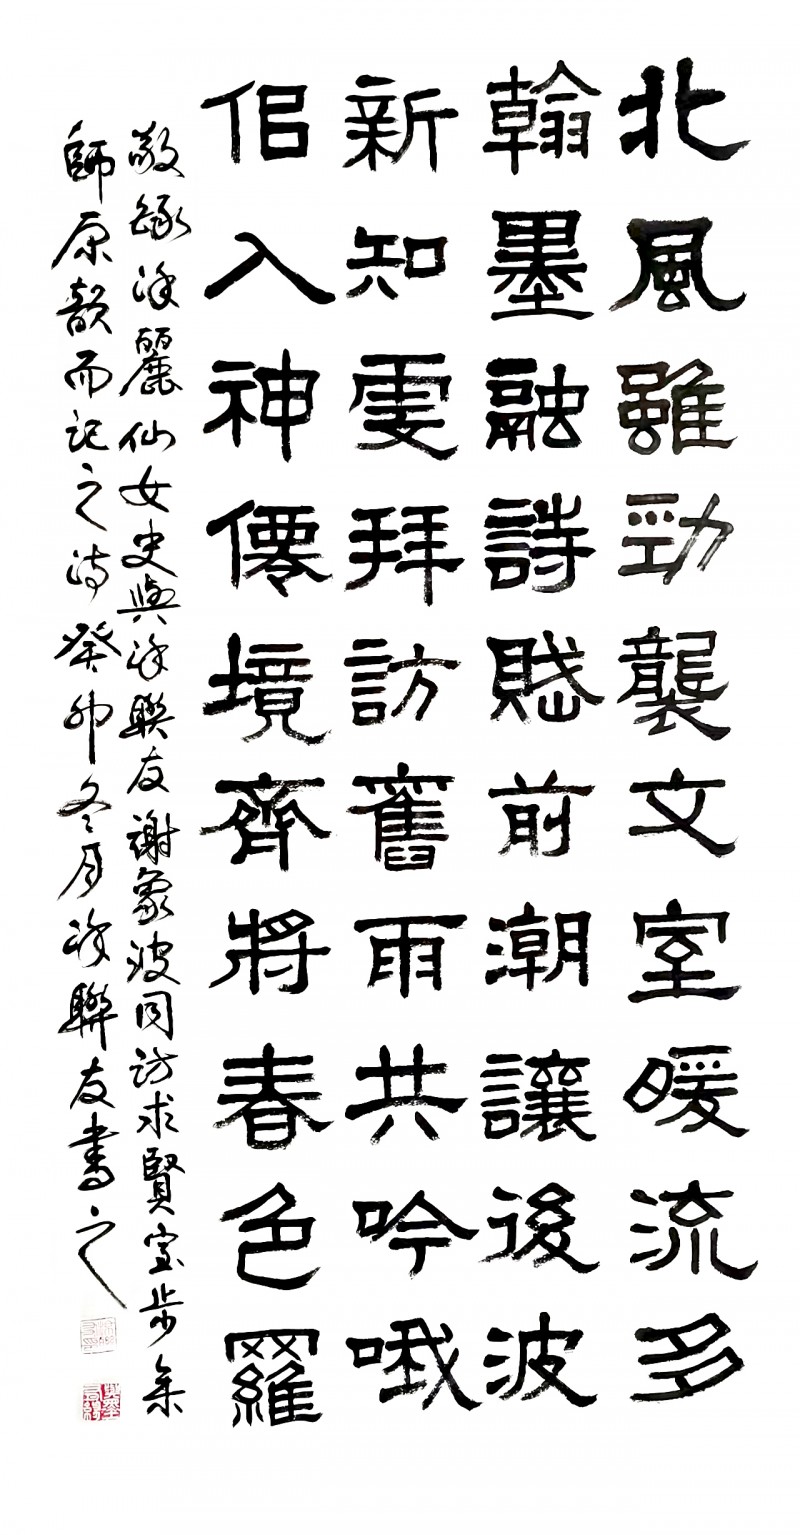 北風雖勁襲文室暖流多
翰墨融詩賦前潮讓後波
新知虔拜訪舊雨共吟哦
佀入神僊境齊將春色羅
敬錄徐麗仙女史與徐聯友謝象波同訪求賢室步余
師原韻而記之詩癸卯冬月徐聯友書之